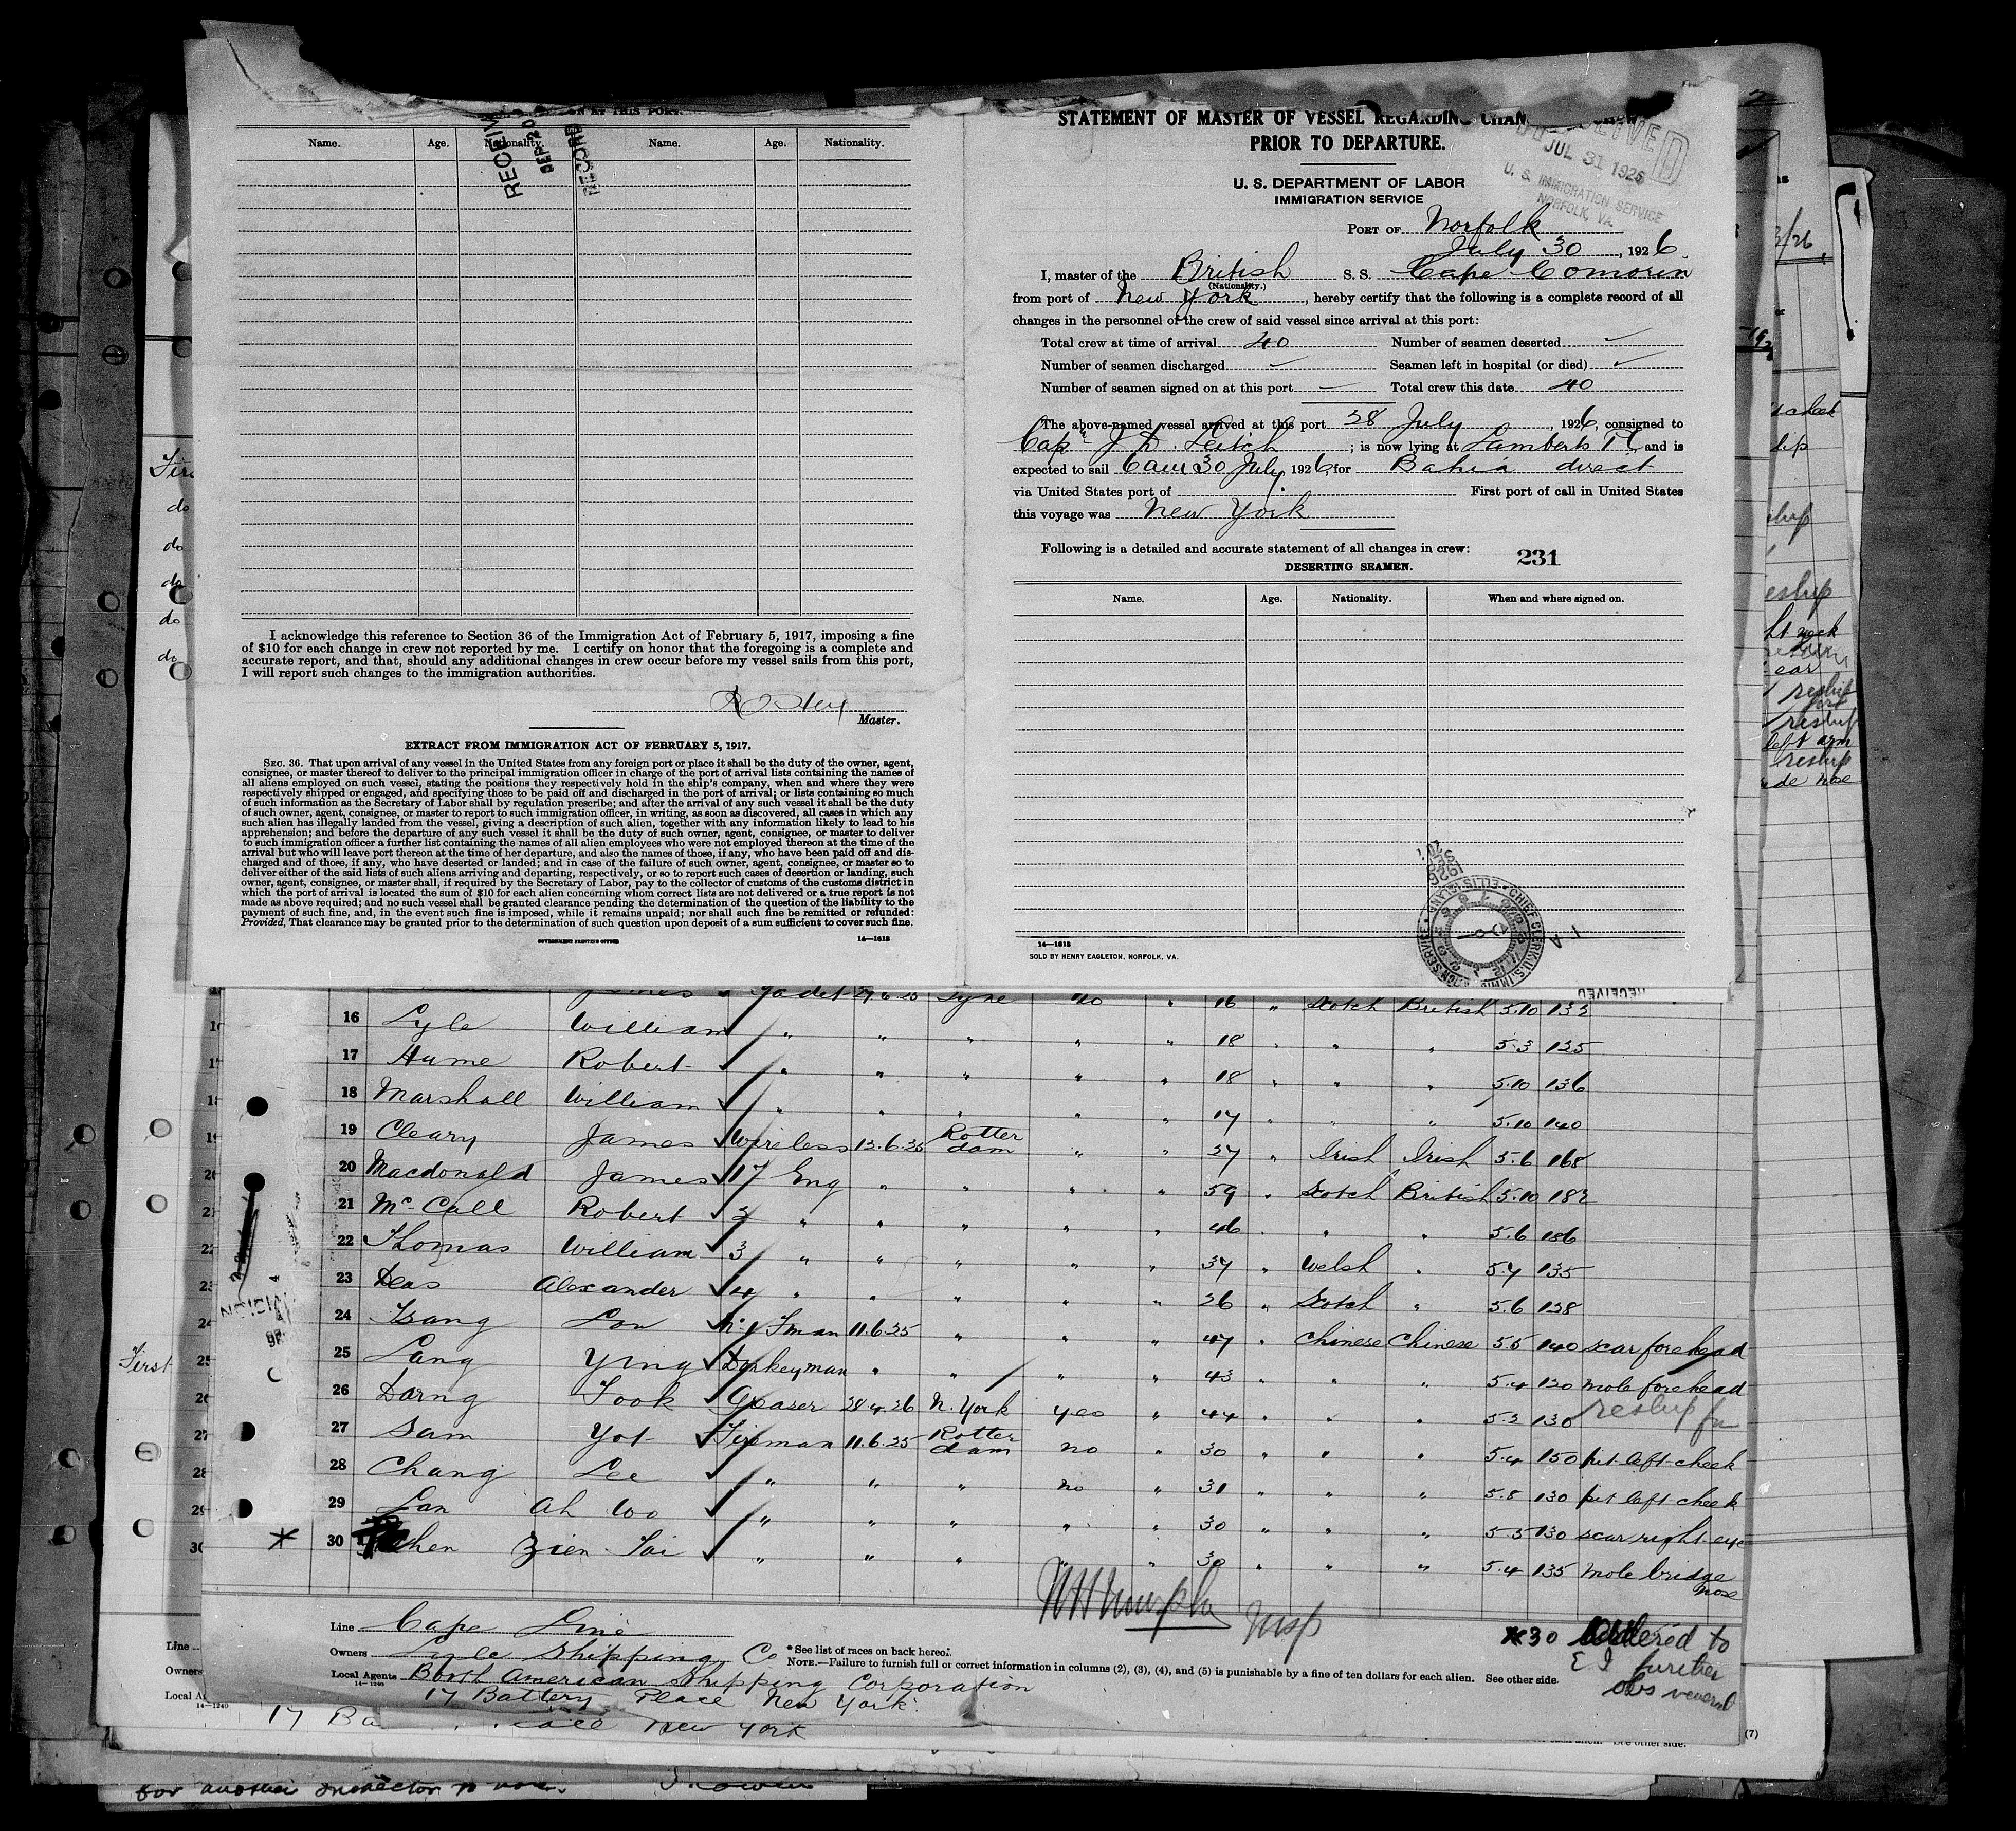 ON AT THIS PORT.
Name. Age. Nationality. Name. Age. Nationality.
I acknowledge this reference to Section 36 of the Immigration Act of February 5, 1917, imposing a fine
of $10 for each change in crew not reported by me. I certify on honor that the foregoing is a complete and
accurate report, and that, should any additional changes in crew occur before my vessel sails from this port,
I will report such changes to the immigration authorities.
Master.
EXTRACT FROM IMMIGRATION ACT OF FEBRUARY 5, 1917.
SEC. 36. That upon arrival of any vessel in the United States from any foreign port or place it shall be the duty of the owner, agent,
consignee, or master thereof to deliver to the principal immigration officer in charge of the port of arrival lists containing the names of
all aliens employed on such vessel, stating the positions they respectively hold in the ship's company, when and where they were
respectively shipped or engaged, and specifying those to be paid off and discharged in the port of arrival; or lists containing so much
of such information as the Secretary of Labor shall by regulation prescribe; and after the arrival of any such vessel it shall be the duty
of such owner, agent, consignee, or master to report to such immigration officer, in writing, as soon as discovered, all cases in which any
such alien has illegally landed from the vessel, giving a description of such alien, together with any information likely to lead to his
apprehension; and before the departure of any such vessel it shall be the duty of such owner, agent, consignee, or master to deliver
to such immigration officer a further list containing the names of all alien employees who were not employed thereon at the time of the
arrival but who will leave port thereon at the time of her departure, and also the names of those, if any, who have been paid off and dis-
charged and of those, if any, who have deserted or landed; and in case of the failure of such owner, agent, consignee, or master so to
deliver either of the said lists of such aliens arriving and departing, respectively, or so to report such cases of desertion or landing, such
owner, agent, consignee, or master shall, if required by the Secretary of Labor, pay to the collector of customs of the customs district in
which the port of arrival is located the sum of $10 for each alien concerning whom correct lists are not delivered or a true report is not
made as above required; and no such vessel shall be granted clearance pending the determination of the question of the liability to the
payment of such fine, and, in the event such fine is imposed, while it remains unpaid; nor shall such fine be remitted or refunded:
Provided, That clearance may be granted prior to the determination of such question upon deposit of a sum sufficient to cover such fine.
GOVERNMENT PRINTING OFFICE 14—1618
STATEMENT OF MASTER OF VESSEL REGARDING CHAN
PRIOR TO DEPARTURE.
JUL 31 1926
U. S. IMMIGRATION SERVICE
NORFOLK, VA.
U. S. DEPARTMENT OF LABOR
IMMIGRATION SERVICE
PORT OF Norfolk
July 30, 1926.
I, master of the British S. S. Cape Comorin
(Nationality.)
from port of New York, hereby certify that the following is a complete record of all
changes in the personnel of the crew of said vessel since arrival at this port:
Total crew at time of arrival 40 Number of seamen deserted
Number of seamen discharged Seamen left in hospital (or died)
Number of seamen signed on at this port Total crew this date 40
The above-named vessel arrived at this port 28 July, 1926, consigned to
Capt J. D. Leitch; is now lying at Lamberts Pt, and is
expected to sail 6 am 30 July, 1926, for Bahia direct
via United States port of First port of call in United States
this voyage was New York
Following is a detailed and accurate statement of all changes in crew: 231
DESERTING SEAMEN.
Name. Age. Nationality. When and where signed on.
14—1618
SOLD BY HENRY EAGLETON, NORFOLK, VA.
CHIEF CLERK U.S. IMMIGN SERVICE ELLIS ISLAND
RECEIVED
Cadet Tyne no " 16 " Scotch British 5.10 133
16 Lyle William " " " " " 18 " " " 5.3 125
17 Hume Robert " " " " " 18 " " " 5.10 136
18 Marshall William " " " " " 17 " " " 5.10 140
19 Cleary James Wireless 12.6.25 Rotterdam " " 27 " Irish Irish 5.6 168
20 Macdonald James 1st Eng " " " " 59 " Scotch British 5.10 182
21 McCall Robert 2 " " " " " 46 " " " 5.6 186
22 Thomas William 3 " " " " " 37 " Welsh " 5.7 135
23 Deas Alexander 4 " " " " " 26 " Scotch " 5.6 138
24 Tsang Lon No 1 Fman 11.6.25 " " " 47 " Chinese Chinese 5.5 140 scar forehead
25 Lang Ying Donkeyman " " " " 43 " " " 5.4 120 mole forehead
26 Darng Fook Greaser 28.4.26 N. York yes " 44 " " " 5.3 130 reship
27 Sam Yot Fireman 11.6.25 Rotterdam no " 30 " " " 5.4 150 pit left cheek
28 Chang Lee " " " no " 31 " " " 5.8 130 pit left cheek
29 Lan Ah Woo " " " " " 30 " " " 5.5 130 scar right eye
30 Chen Zien Tai " " " " 30 " " " 5.4 135 mole bridge nose
Line Cape Line
Owners Lyle Shipping Co
*See list of races on back hereof.
NOTE.—Failure to furnish full or correct information in columns (2), (3), (4), and (5) is punishable by a fine of ten dollars for each alien. See other side.
Local Agents North American Shipping Corporation
14—1240
17 Battery Place New York
*30 Ordered to
E I further
obs venereal
First
do
do
do
do
do
First
Line
Owners
Local A
14—1240
17 Ba
New York
(7)
for another inspector